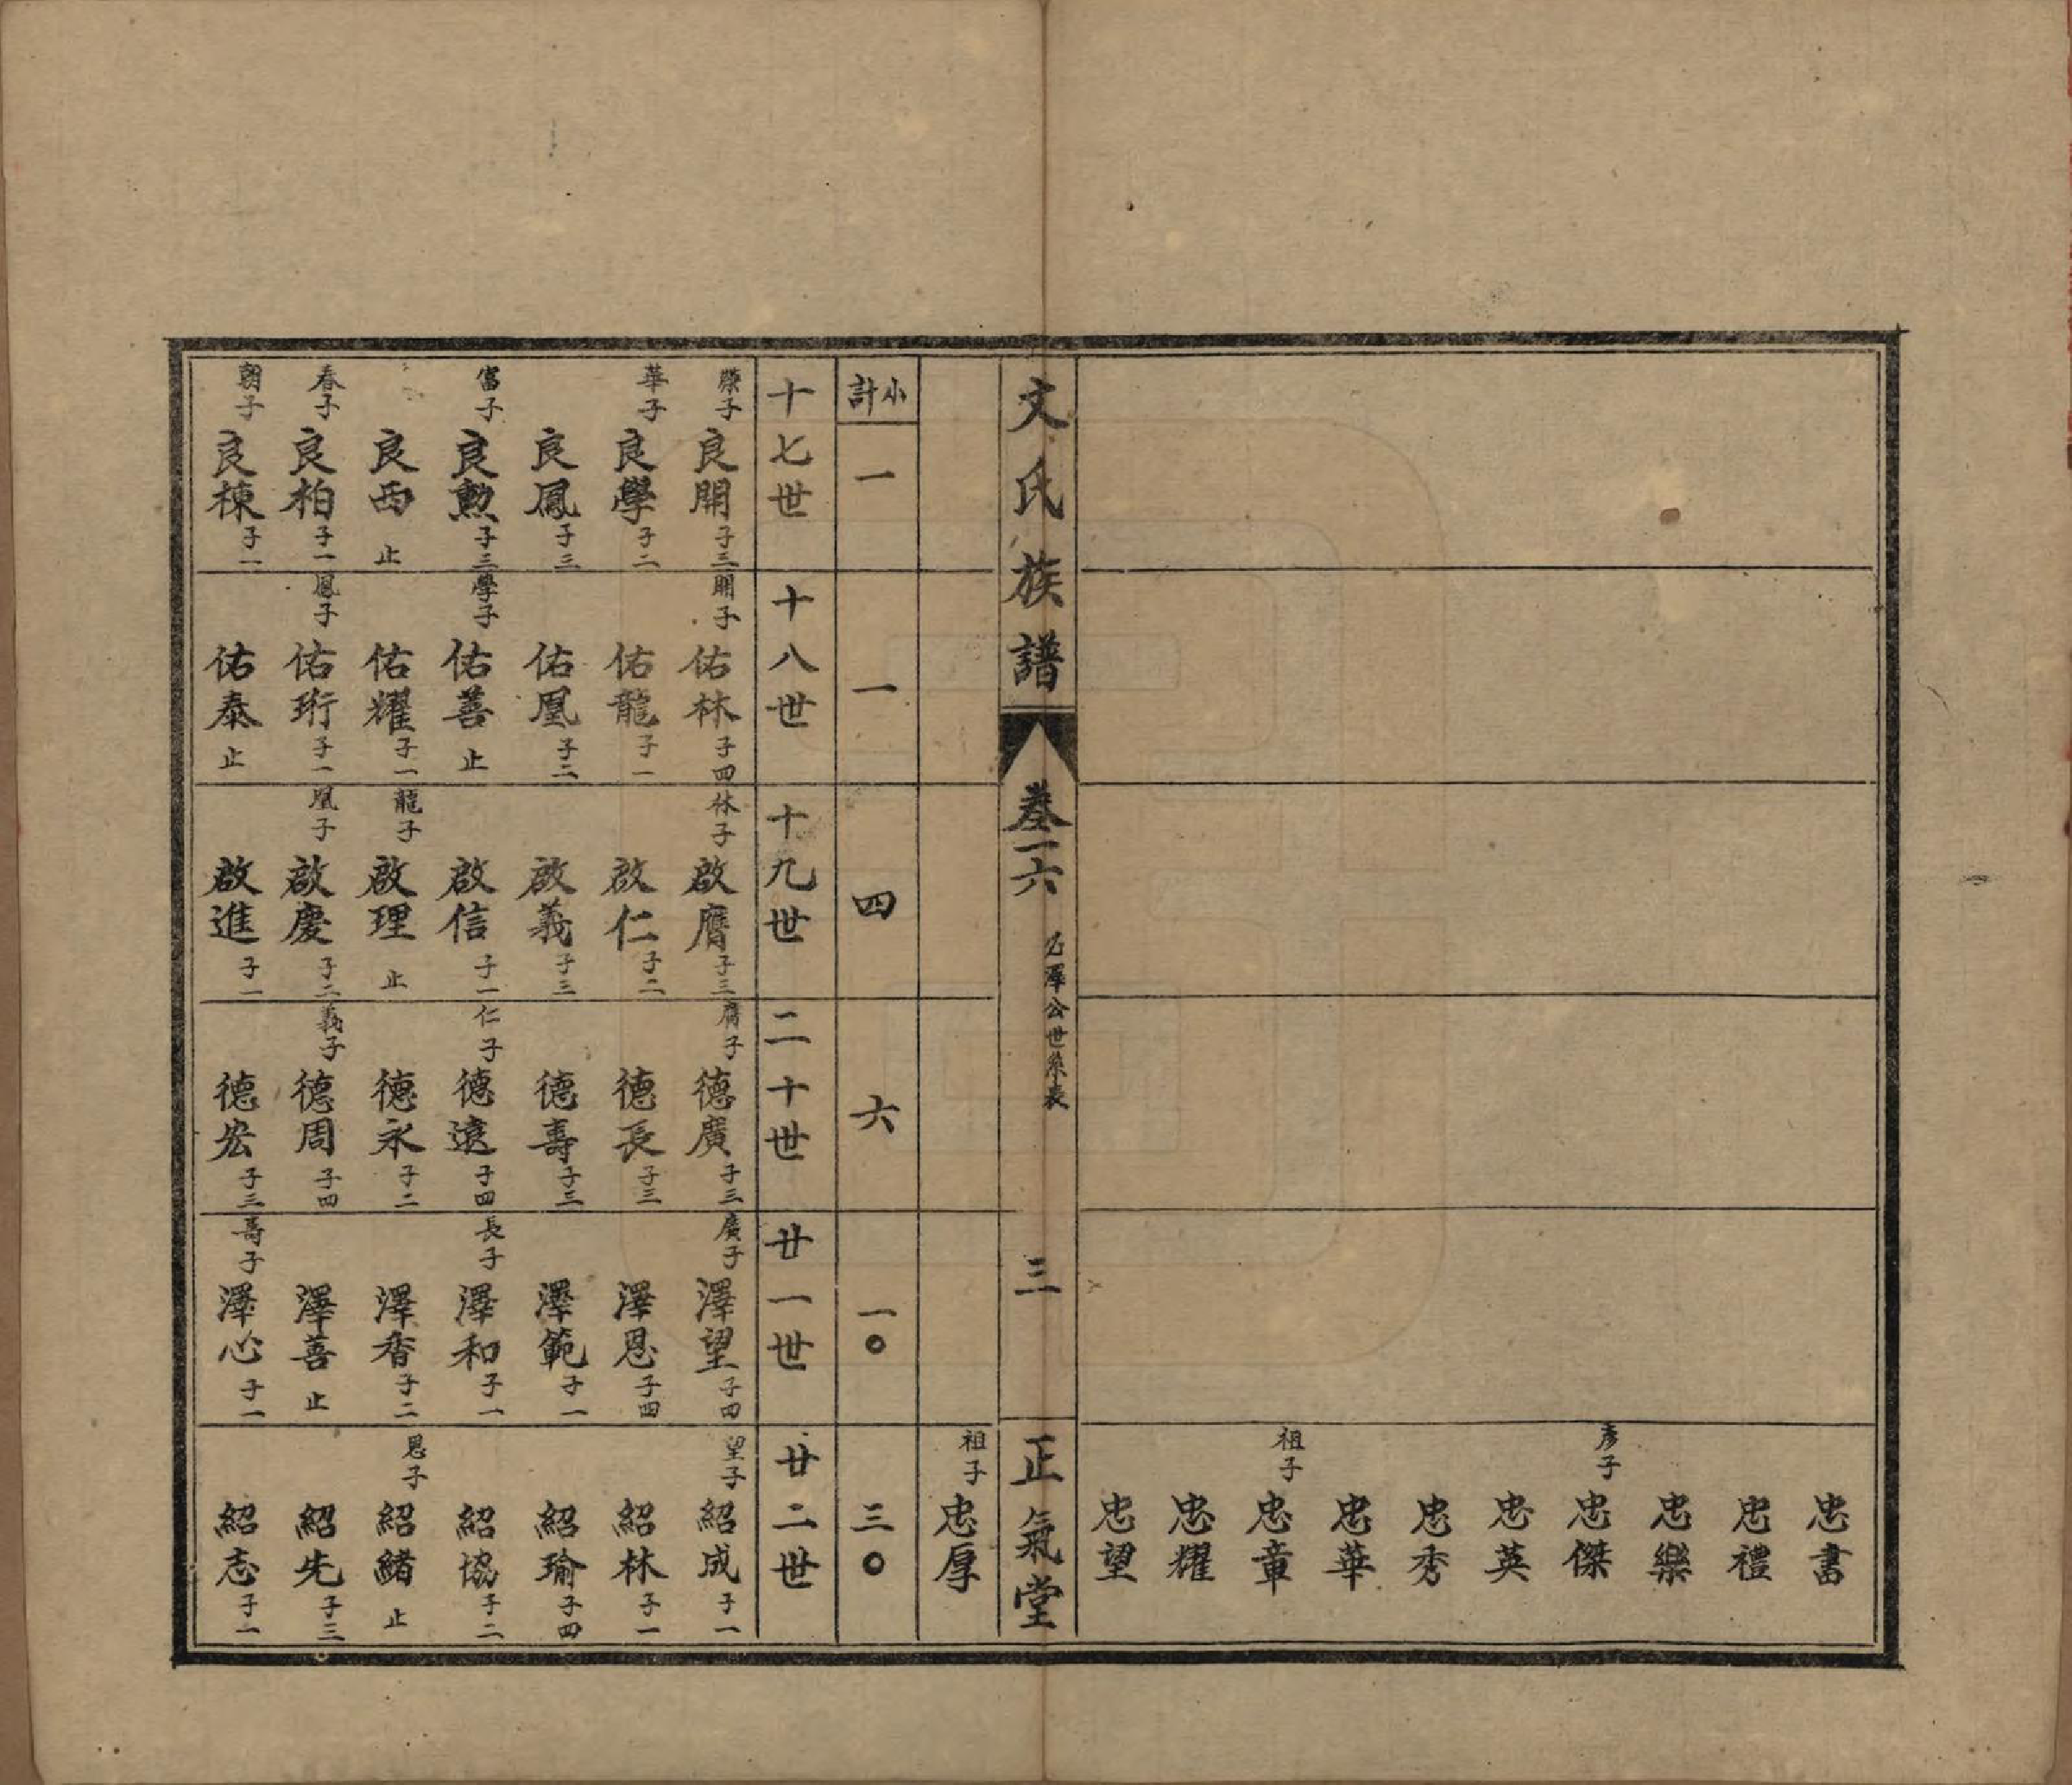 忠書
忠禮
忠樂
彥子 忠傑
忠英
忠秀
忠華
祖子 忠章
忠耀
忠望
文氏族譜 卷一六 公世系表 三 正氣堂
祖子 忠厚
小計 一 一 四 六 一〇 三〇
十七世 十八世 十九世 二十世 廿一世 廿二世
榮子 良開 子三
華子 良學 子二
良鳳 子三
富子 良勲 子三
良西 止
春子 良柏 子一
朝子 良棟 子一
開子 佑林 子四
佑龍 子一
佑凰 子二
學子 佑善 止
佑耀 子一
鳳子 佑珩 子一
佑泰 止
林子 啟膺 子三
啟仁 子二
啟義 子三
啟信 子一
龍子 啟理 止
凰子 啟慶 子二
啟進 子一
膺子 德廣 子三
德長 子三
德壽 子三
仁子 德遠 子四
德永 子二
義子 德周 子四
德宏 子三
廣子 澤望 子四
澤恩 子四
澤範 子一
長子 澤和 子一
澤香 子二
澤善 止
壽子 澤心 子一
望子 紹成 子一
紹林 子一
紹瑜 子四
紹協 子二
恩子 紹緒 止
紹先 子三
紹志 子一